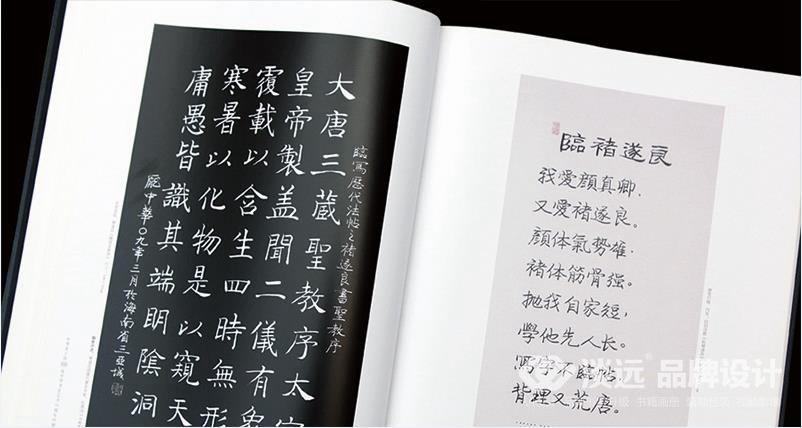 大唐三蔵聖教序太
臨寫歷代法帖之褚遂良書聖教序
皇帝製盖聞二儀有象
覆載以含生四時無形
寒暑以化物是以窺天
庸愚皆識其端明陰洞
龐中華〇九年三月於海南省三亞城
臨褚遂良
我愛顏真卿，
又愛褚遂良。
顏体氣勢雄，
褚体筋骨强。
抛我自家短，
學他先人长。
写字不臨帖，
背理又荒唐。
淡远® 品牌设计
书籍画册